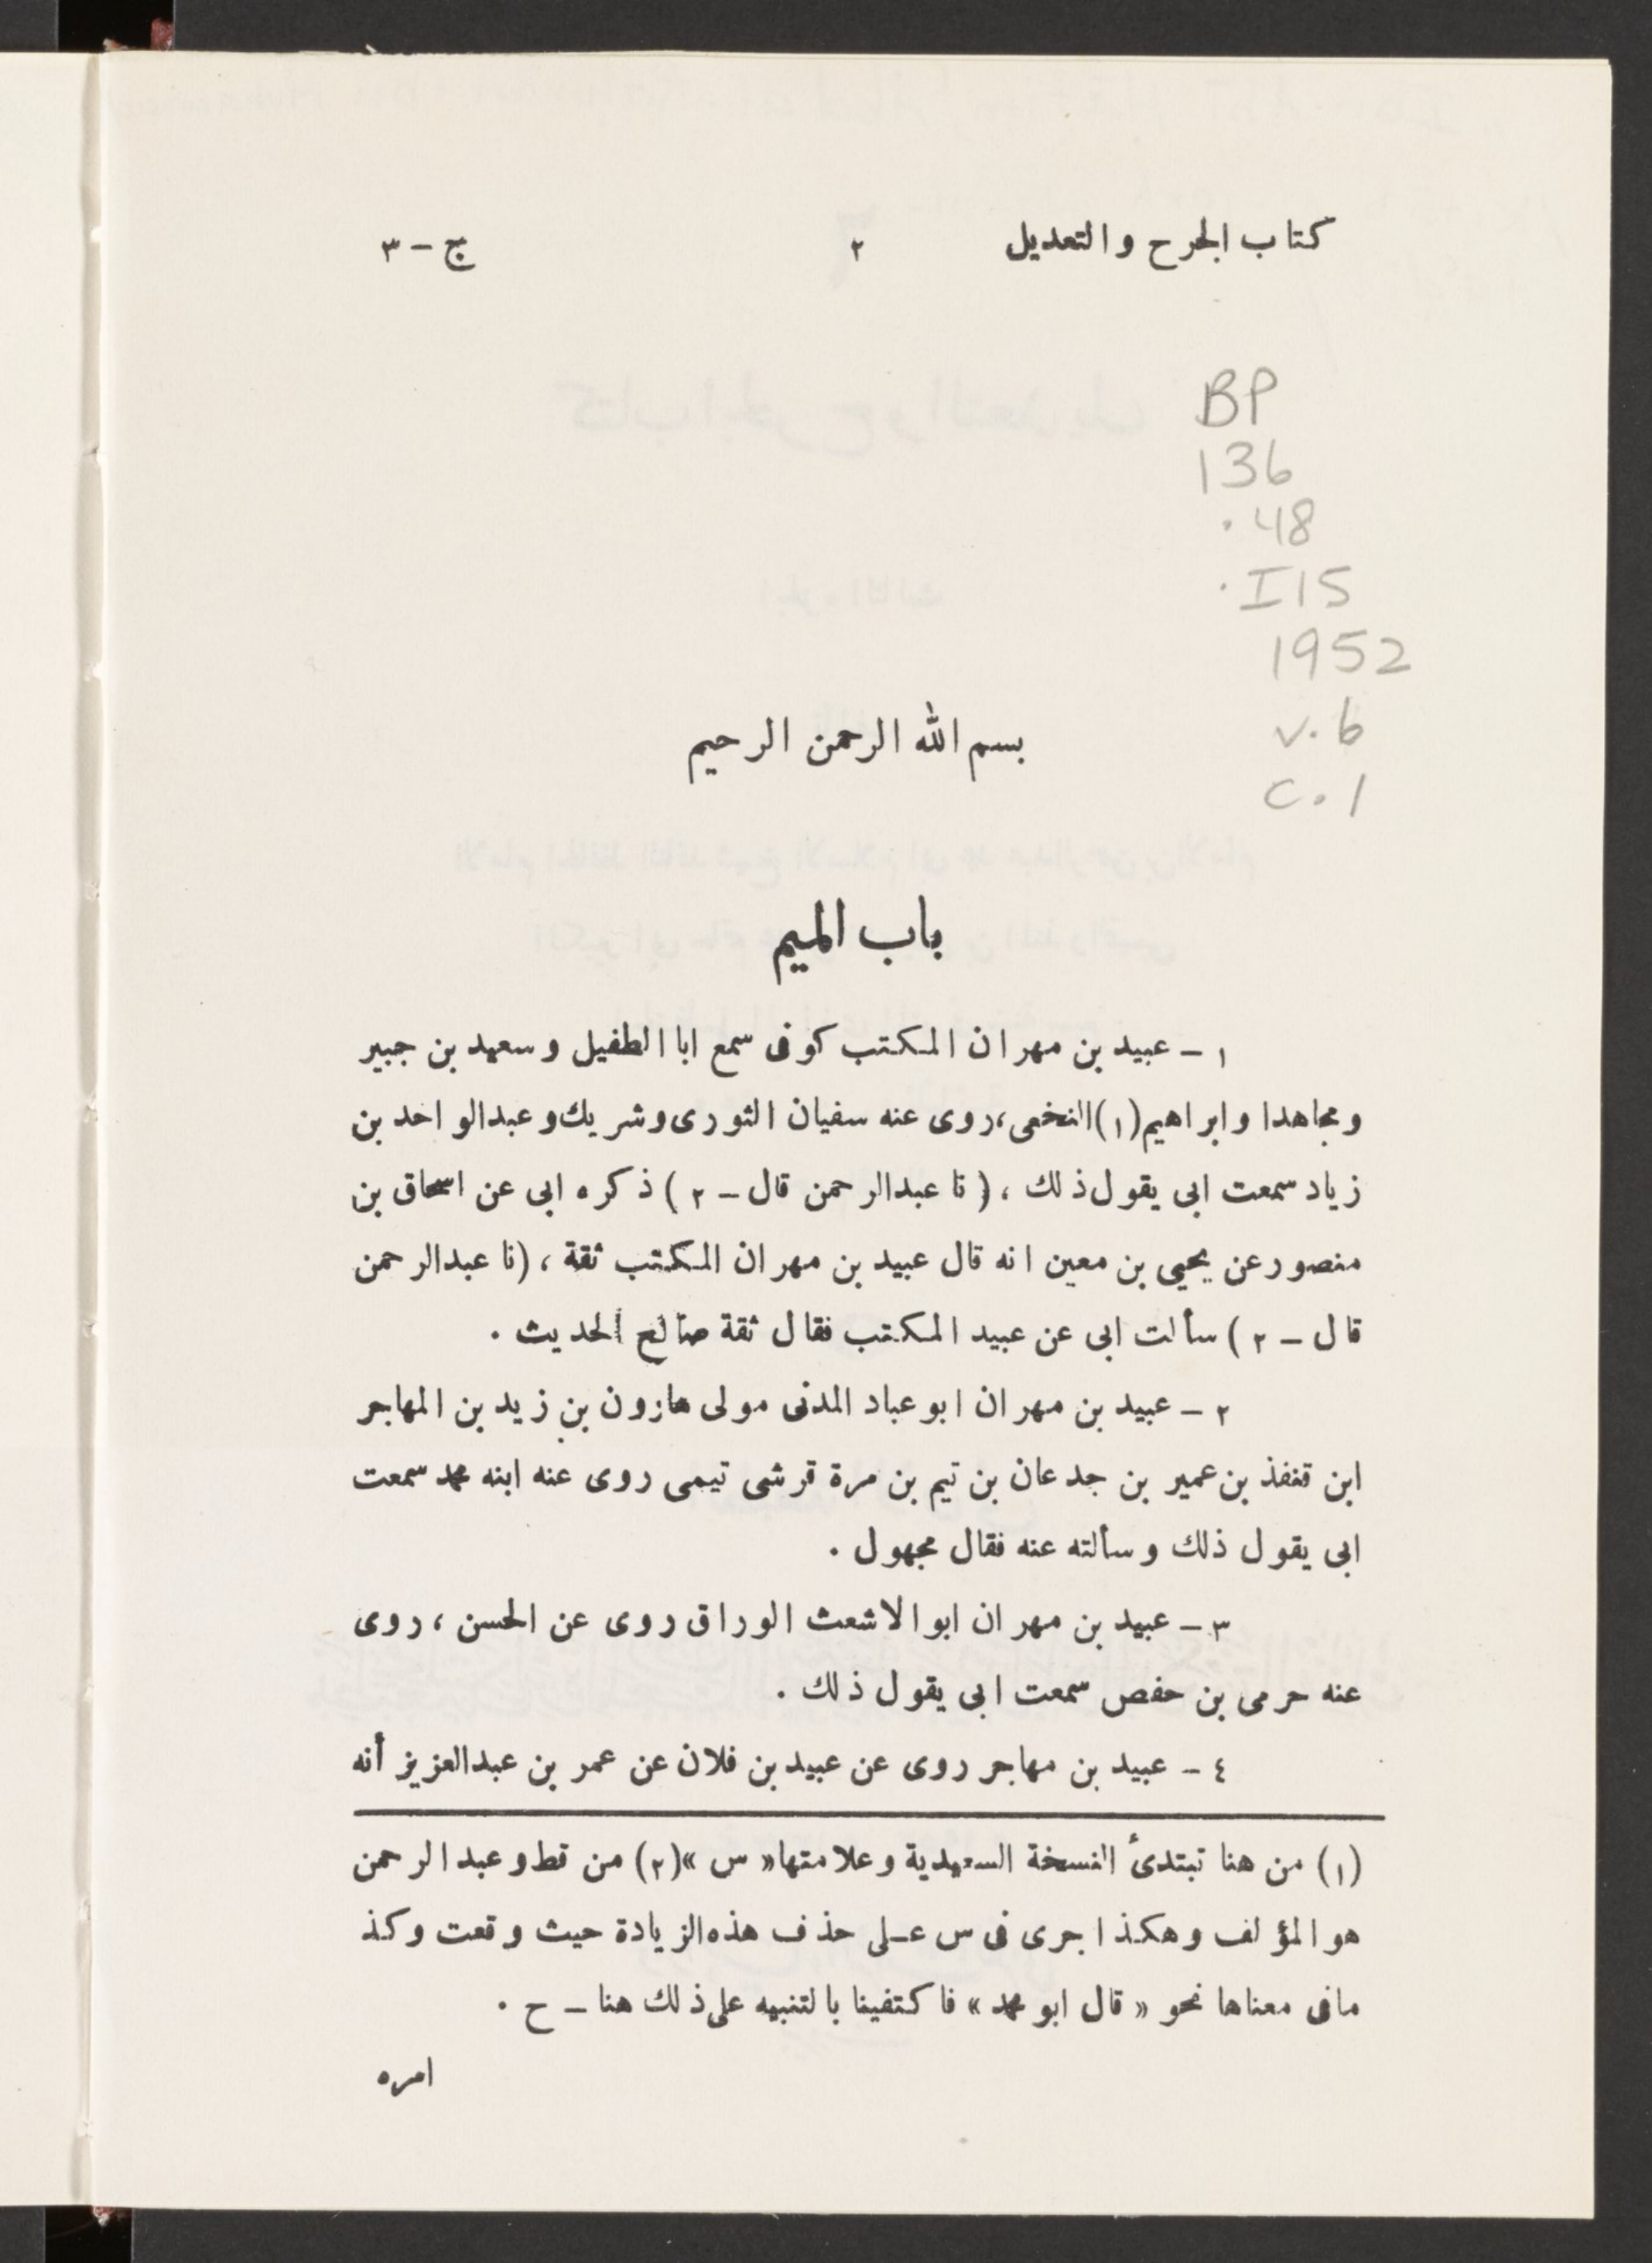 كتاب الجرح والتعديل ٢ ج - ٣
BP
136
.48
.I15
1952
v.6
c.1
بسم الله الرحمن الرحيم
باب الميم
١ - عبيد بن مهران المكتب كوفى سمع ابا الطفيل وسعيد بن جبير
ومجاهدا وابراهيم(١)النخعى،روى عنه سفيان الثورى وشريك وعبدالواحد بن
زياد سمعت ابى يقول ذلك ، (نا عبدالرحمن قال - ٢) ذكره ابى عن اسحاق بن
منصور عن يحيى بن معين انه قال عبيد بن مهران المكتب ثقة ، (نا عبدالرحمن
قال - ٢) سألت ابى عن عبيد المكتب فقال ثقة صالح الحديث .
٢ - عبيد بن مهران ابو عباد المدنى مولى هارون بن زيد بن المهاجر
ابن قنفذ بن عمير بن جدعان بن تيم بن مرة قرشى تيمى روى عنه ابنه محمد سمعت
ابى يقول ذلك وسألته عنه فقال مجهول .
٣ - عبيد بن مهران ابو الاشعث الوراق روى عن الحسن ، روى
عنه حرمى بن حفص سمعت ابى يقول ذلك .
٤ - عبيد بن مهاجر روى عن عبيد بن فلان عن عمر بن عبدالعزيز أنه
(١) من هنا تبتدئ النسخة السعيدية وعلامتها « س »(٢) من قط وعبد الرحمن
هو المؤلف وهكذا جرى فى س على حذف هذه الزيادة حيث وقعت وكذ
مافى معناها نحو « قال ابو محمد » فاكتفينا بالتنبيه على ذلك هنا - ح .
امره